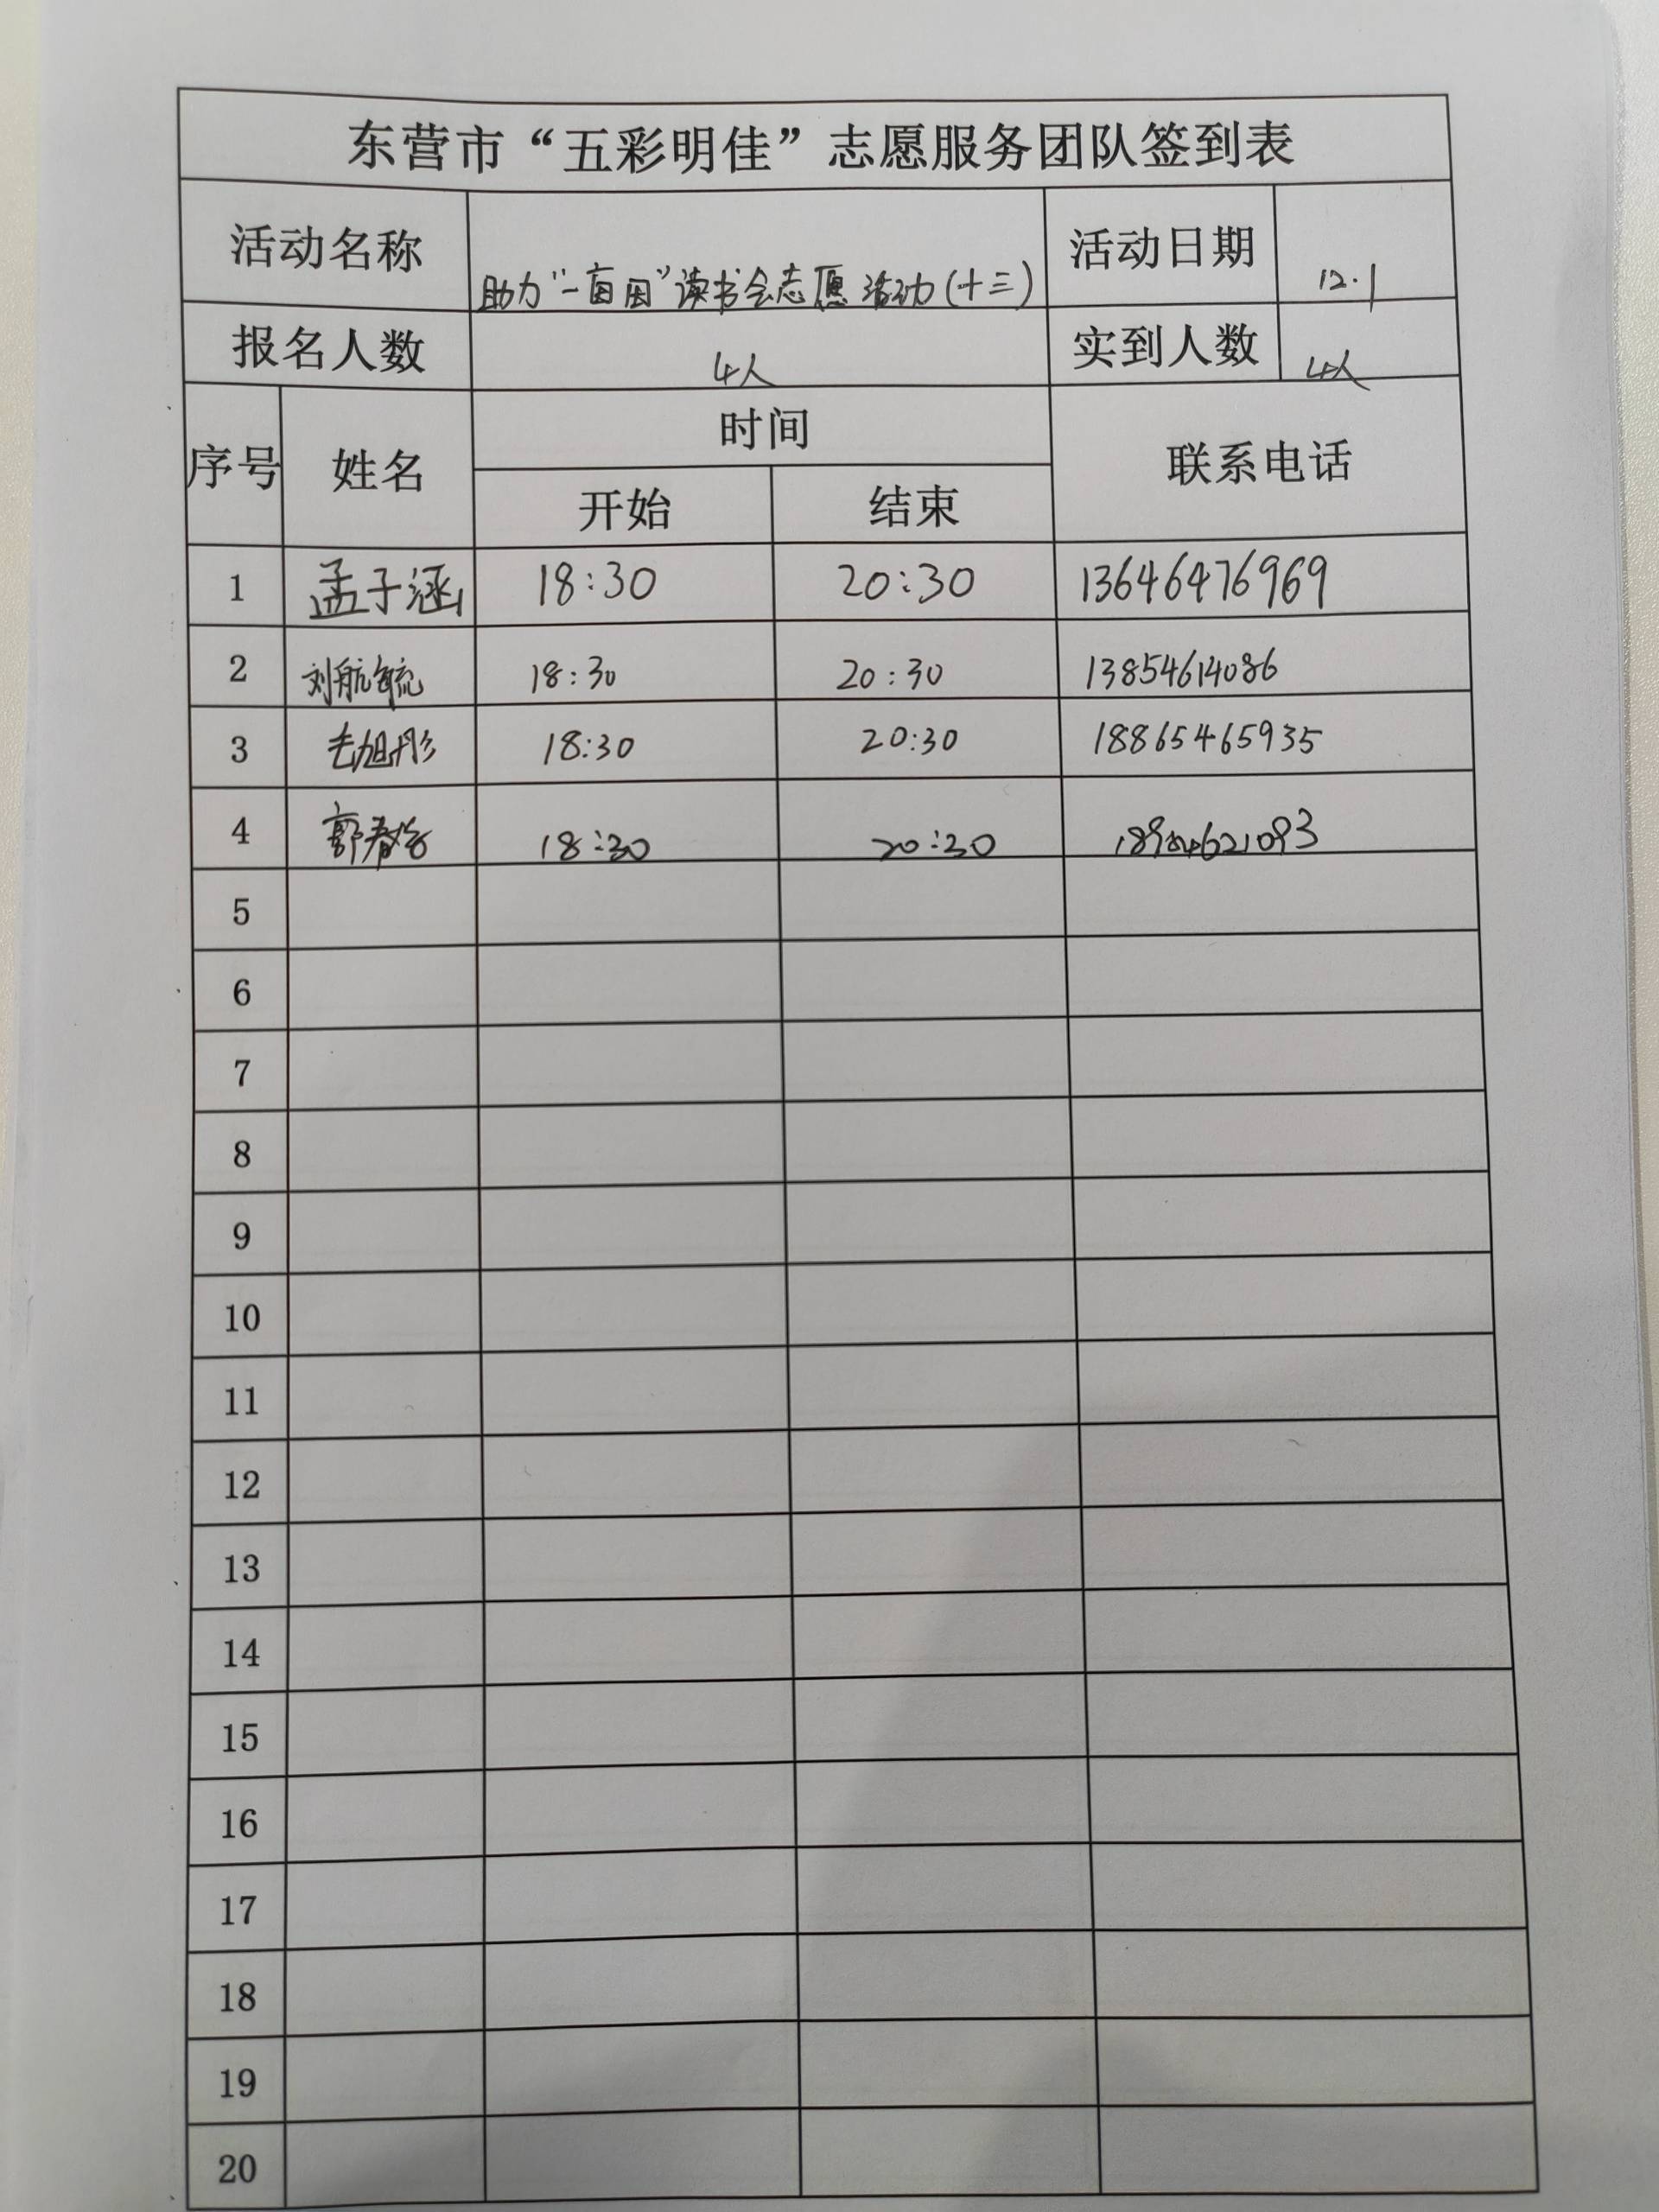 东营市“五彩明佳”志愿服务团队签到表
活动名称 助力“一亩田”读书会志愿活动(十三) 活动日期 12.1
报名人数 4人 实到人数 4人
序号 姓名 时间 联系电话
开始 结束
1 孟子涵 18:30 20:30 13646476969
2 刘航毓 18:30 20:30 13854614086
3 旭彤 18:30 20:30 18865465935
4 郭春 18:30 20:30
5
6
7
8
9
10
11
12
13
14
15
16
17
18
19
20